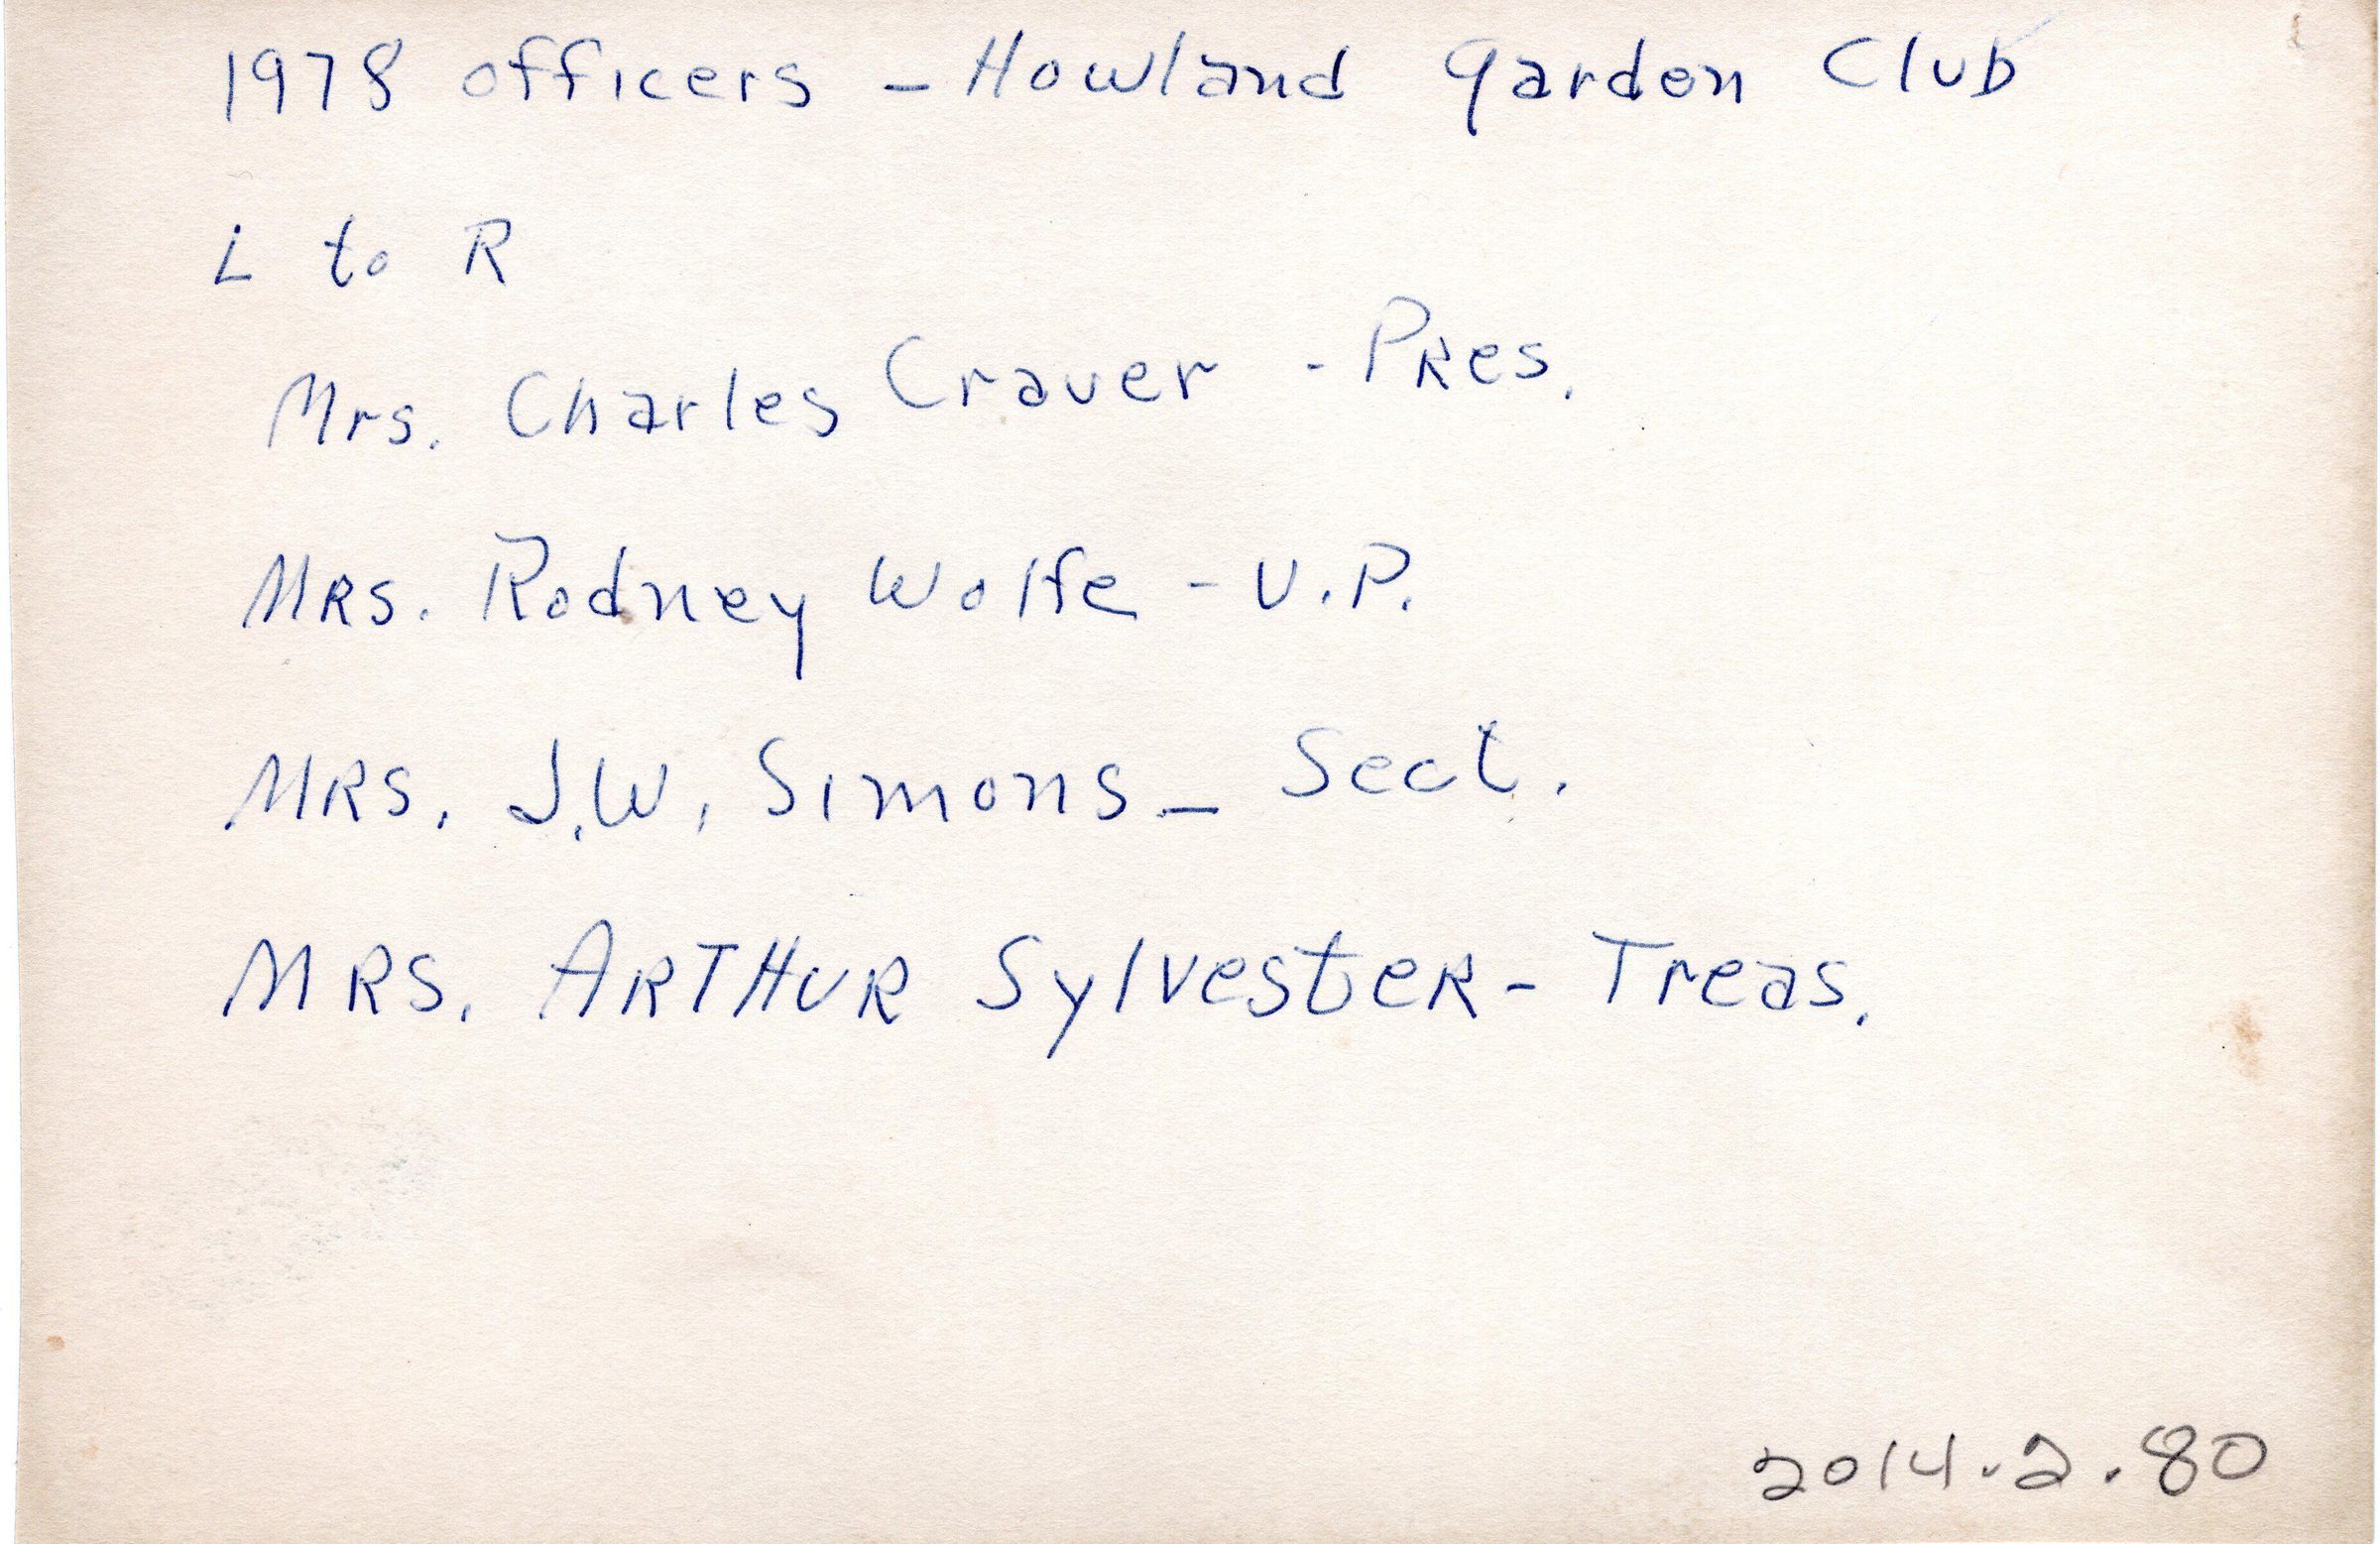 1978 officers - Howland Garden Club
L to R
Mrs. Charles Craver - Pres.
MRS. Rodney Wolfe - V.P.
MRS. J.W. Simons - Sect.
MRS. ARTHUR SylvesteR - Treas.
2014.2.80